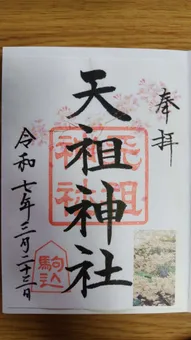 奉拝
天祖神社
天祖神社
駒込
令和七年三月二十三日